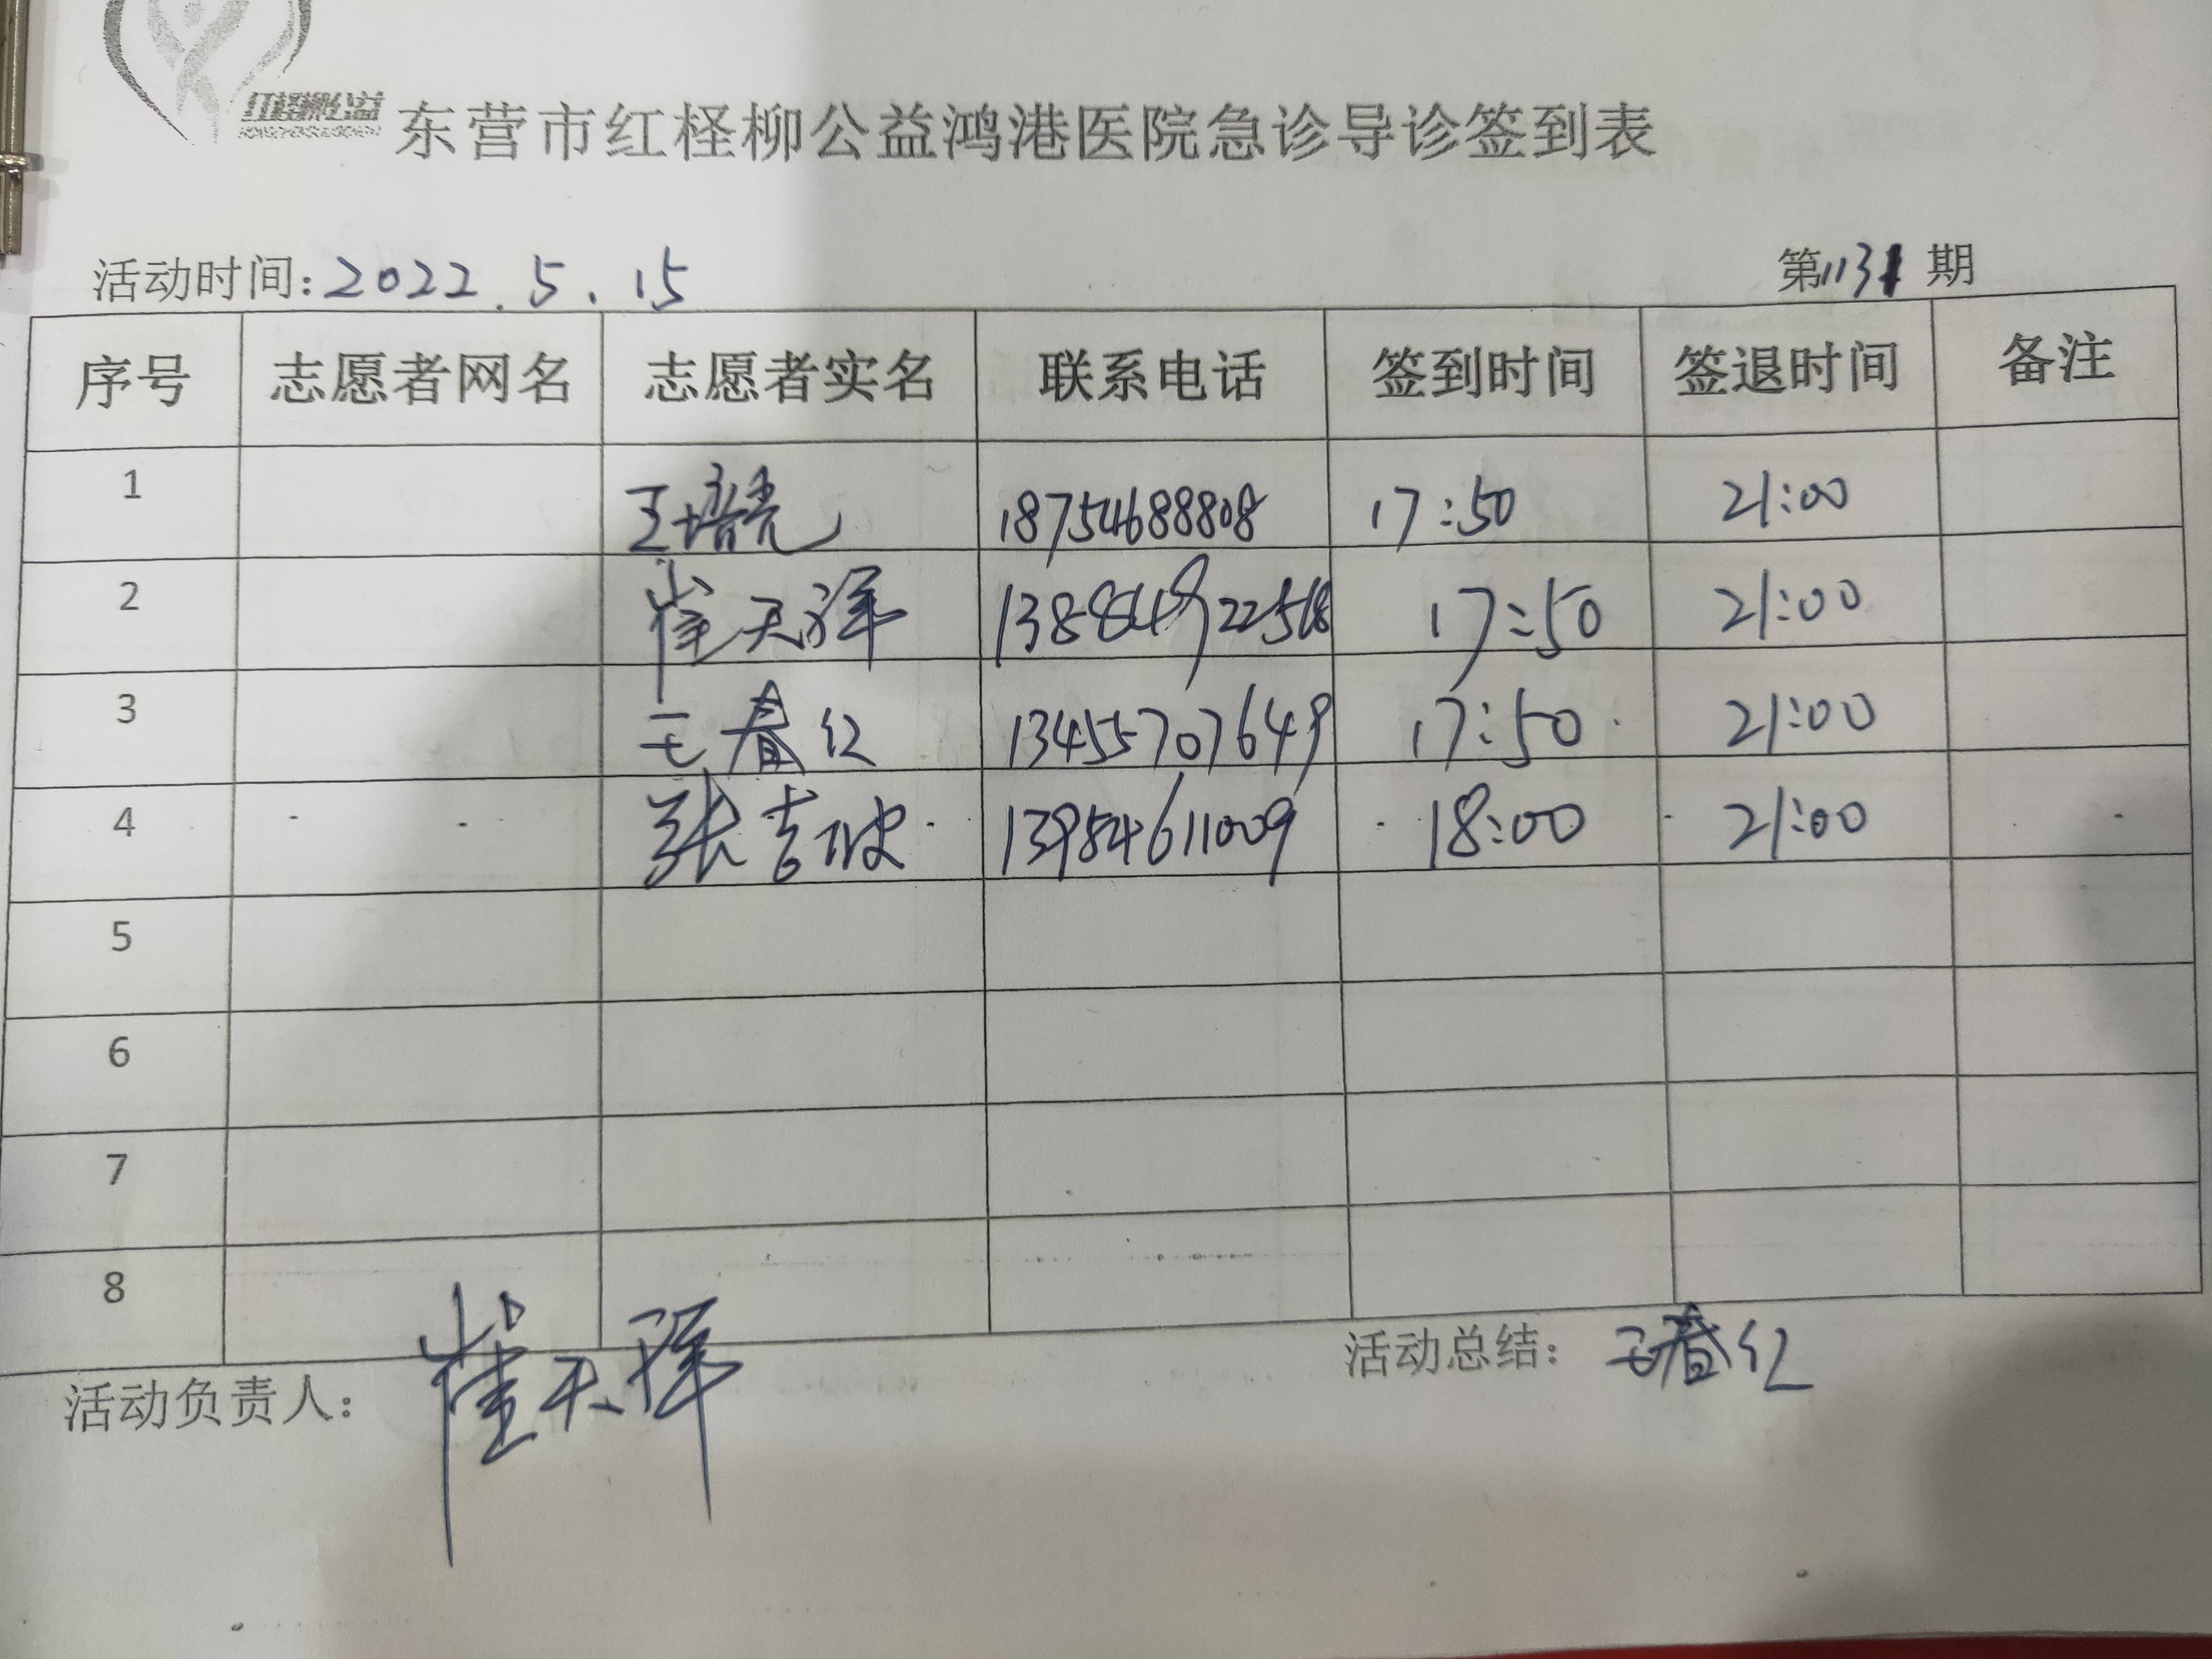 红柽柳公益
东营市红柽柳公益鸿港医院急诊导诊签到表
活动时间：2022.5.15 第1131期
序号 志愿者网名 志愿者实名 联系电话 签到时间 签退时间 备注
1 王培亮 18754688808 17:50 21:00
2 崔天洋 17:50 21:00
3 王春红 13455707649 17:50 21:00
4 张吉波 13954611009 18:00 21:00
5
6
7
8
活动负责人： 崔天洋 活动总结： 王春红